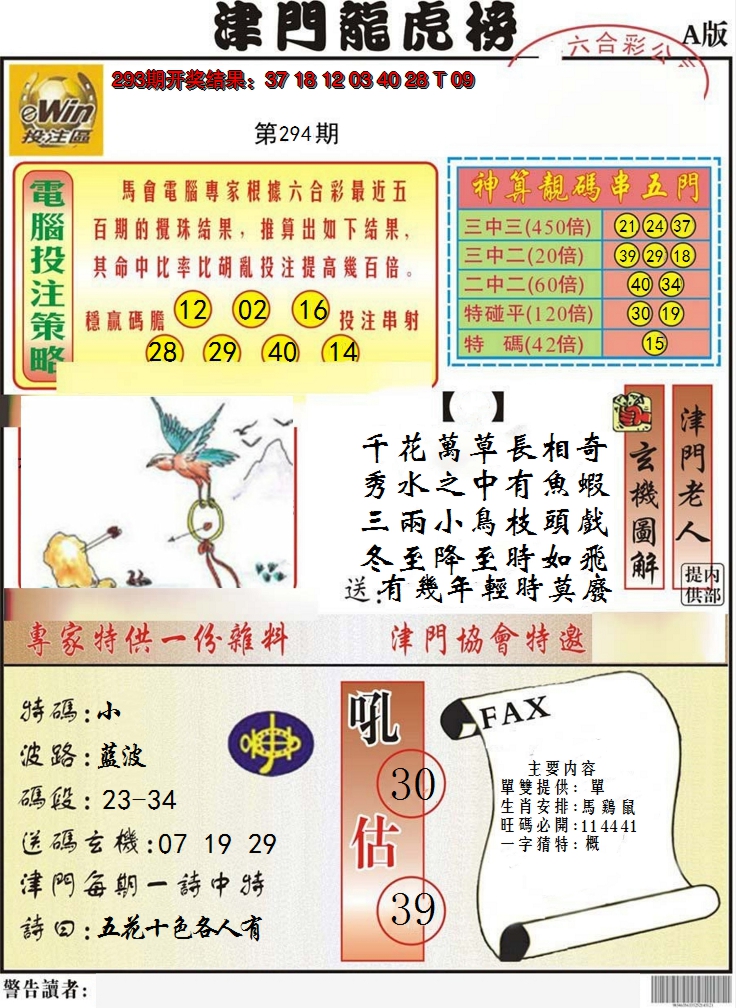 津門龍虎榜
A版
六合彩公
293期开奖结果：37 18 12 03 40 28 T 09
eWin
投注區
第294期
電腦投注策略
馬會電腦專家根據六合彩最近五
百期的攪珠结果，推算出如下结果，
其命中比率比胡亂投注提高幾百倍。
穩贏碼膽 12 02 16 投注串射
28 29 40 14
神算靚碼串五門
三中三(450倍) 21 24 37
三中二(20倍) 39 29 18
二中二(60倍) 40 34
特碰平(120倍) 30 19
特 碼(42倍) 15
【 】
千花萬草長相奇
秀水之中有魚蝦
三兩小鳥枝頭戲
冬至降至時如飛
送:有幾年輕時莫廢
玄機圖解
津門老人
内部提供
專家特供一份雜料
津門協會特邀
特碼:小
波路:藍波
碼段:23-34
送碼玄機:07 19 29
津門每期一詩中特
詩曰:五花十色各人有
吼
30
估
39
FAX
主要内容
單雙提供：單
生肖安排:馬鷄鼠
旺碼必開:11 44 41
一字猜特：概
警告讀者：